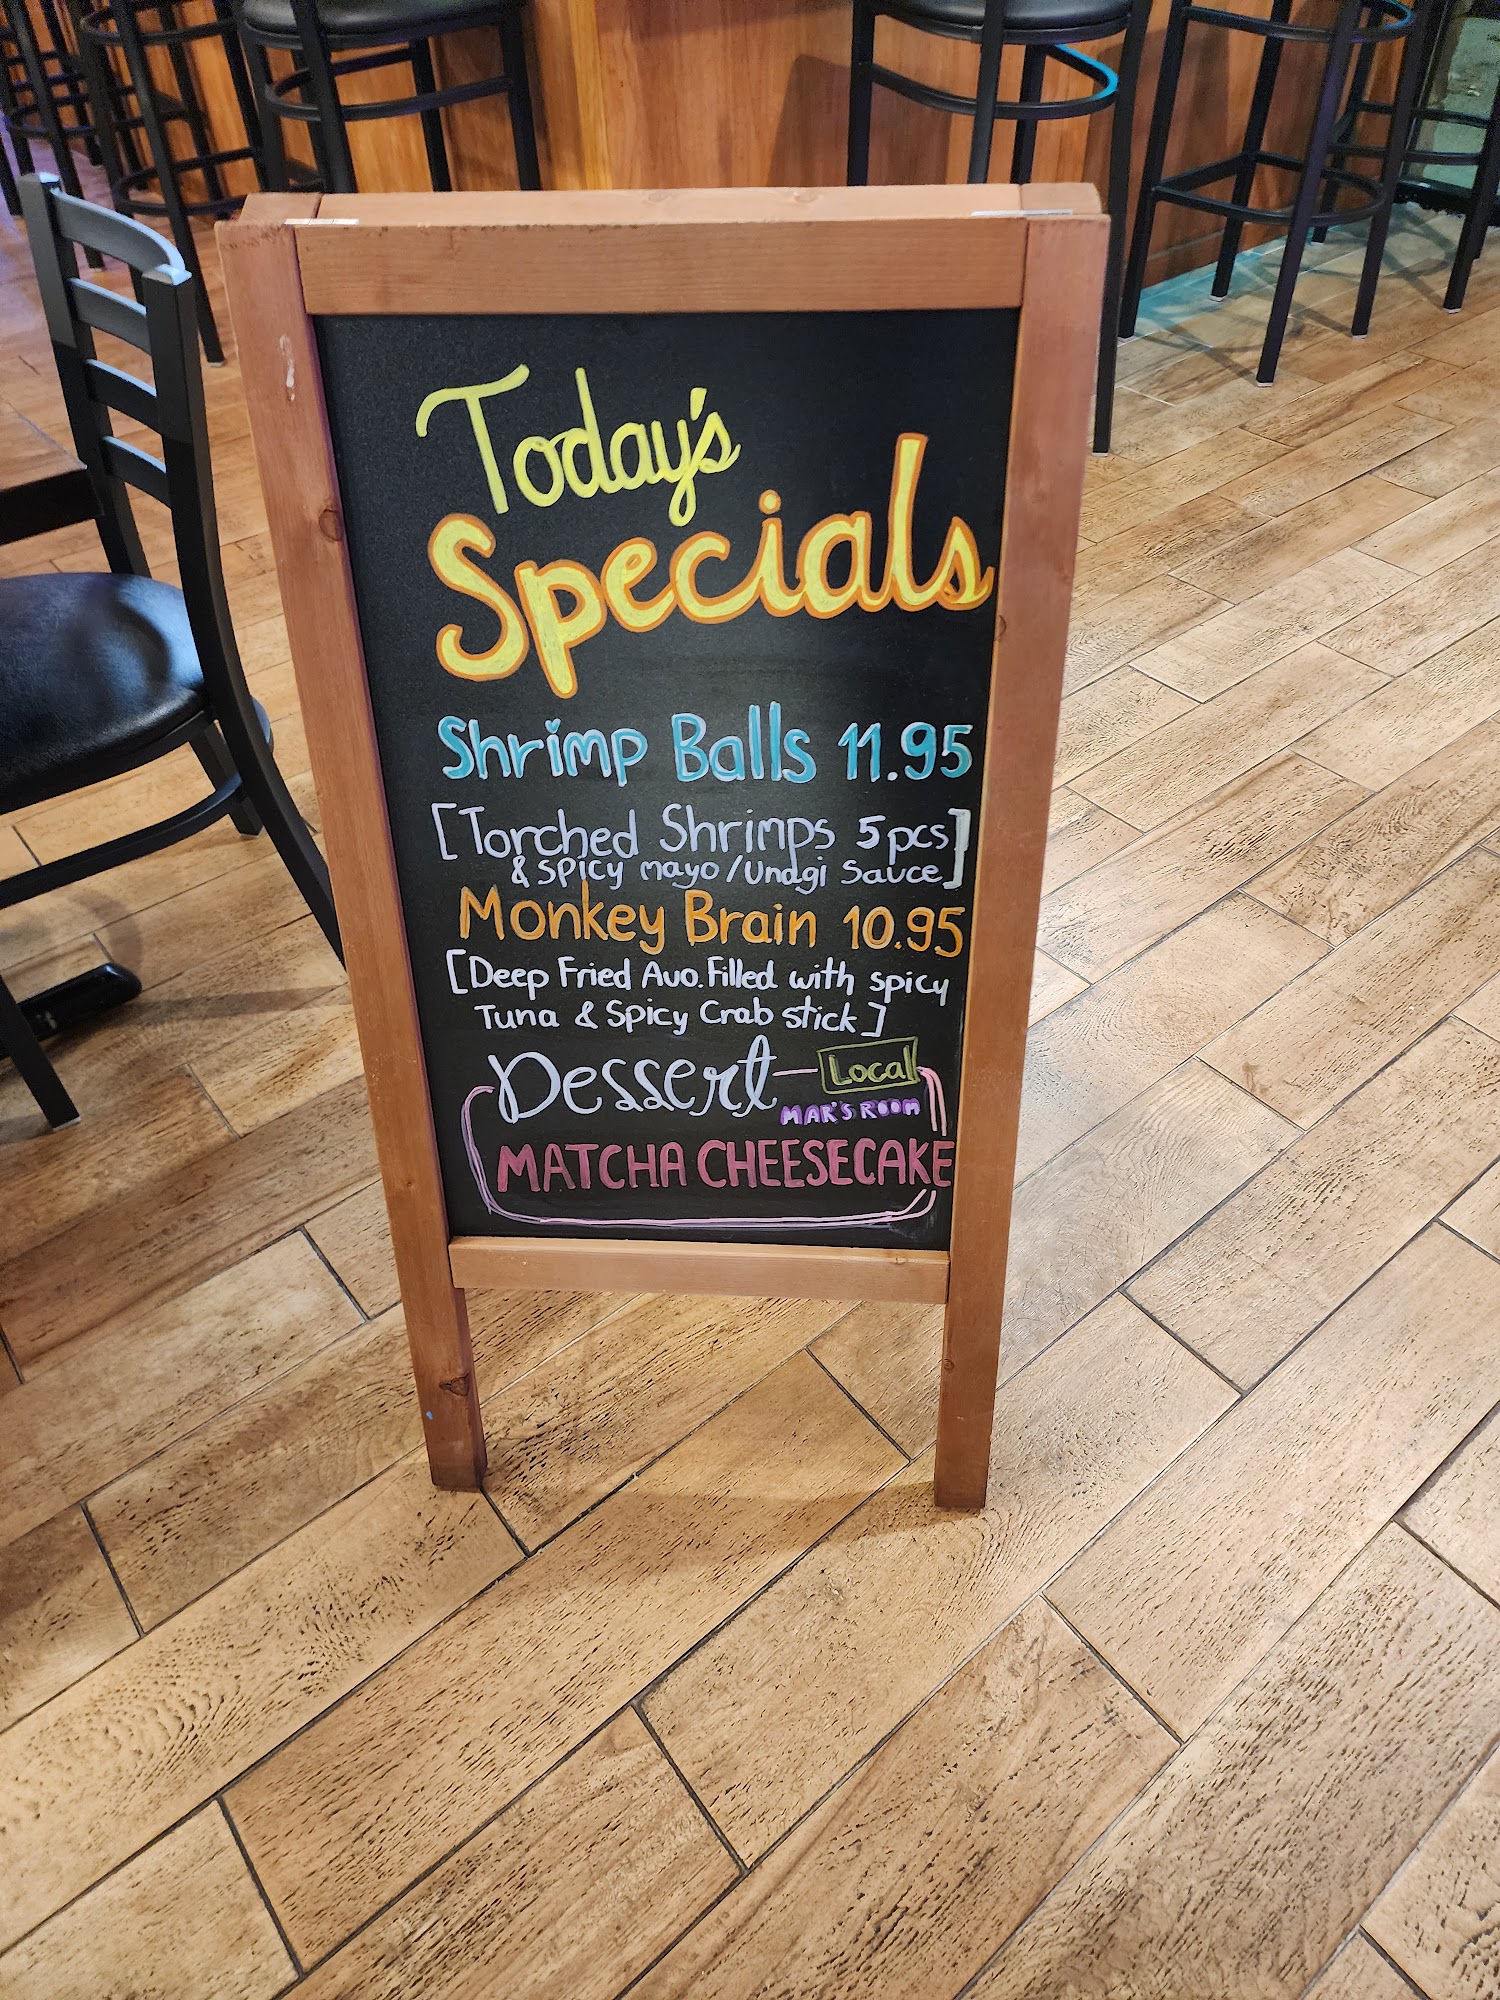 Today's
Specials
Shrimp Balls 11.95
[Torched Shrimps 5pcs]
& spicy mayo/Undgi Sauce
Monkey Brain 10.95
[Deep Fried Avo. Filled with spicy
Tuna & Spicy Crab stick]
Dessert Local
MAR'S ROOM
MATCHA CHEESECAKE